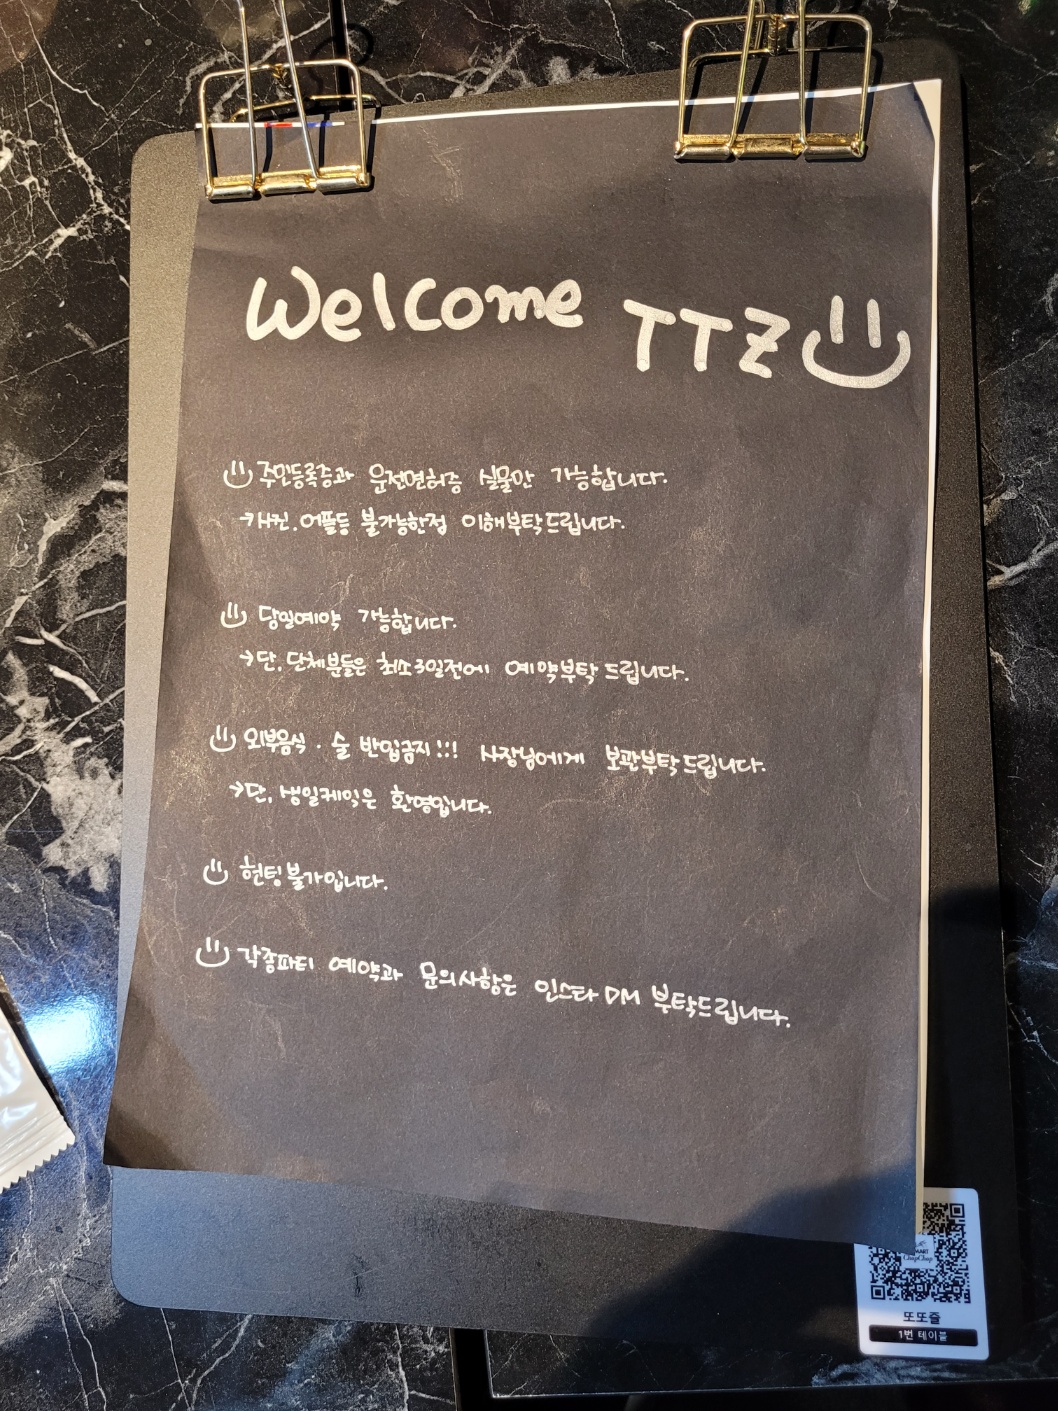 Welcome TTZ
주민등록증과 운전면허증 실물만 가능합니다.
→사진.어플등 불가능한점 이해부탁드립니다.
당일예약 가능합니다.
→단, 단체분들은 최소3일전에 예약부탁드립니다.
외부음식·술 반입금지!!! 사장님에게 보관부탁드립니다.
→단, 생일케잌은 환영입니다.
헌팅불가입니다.
각종파티 예약과 문의사항은 인스타DM 부탁드립니다.
또또즐
1번 테이블